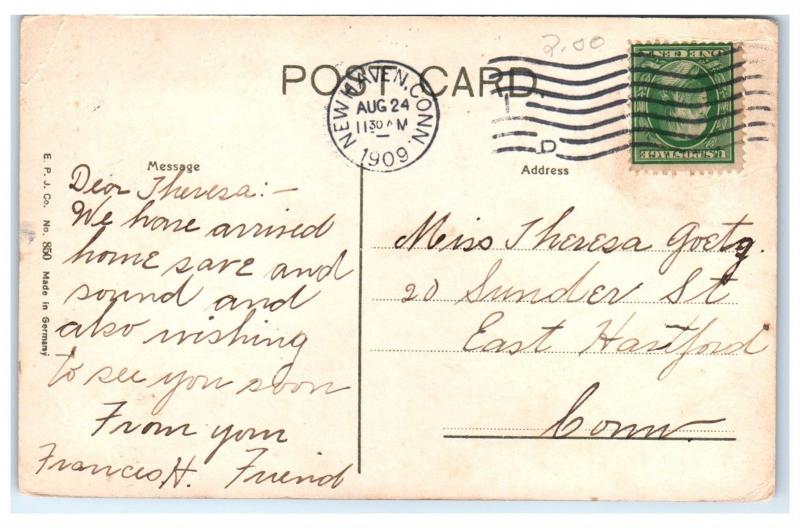 2.00
POST CARD
NEW HAVEN, CONN.
AUG 24
11 30 AM
1909
D
Message
Dear Theresa:-
We have arrived
home save and
sound and
also wishing
to see you soon
From your
Frances H. Friend
Address
Miss Theresa Goetz.
20 Sunder St
East Hartford
Conn.
E. P. J. Co. No. 850 Made in Germany
U.S. POSTAGE
ONE CENT